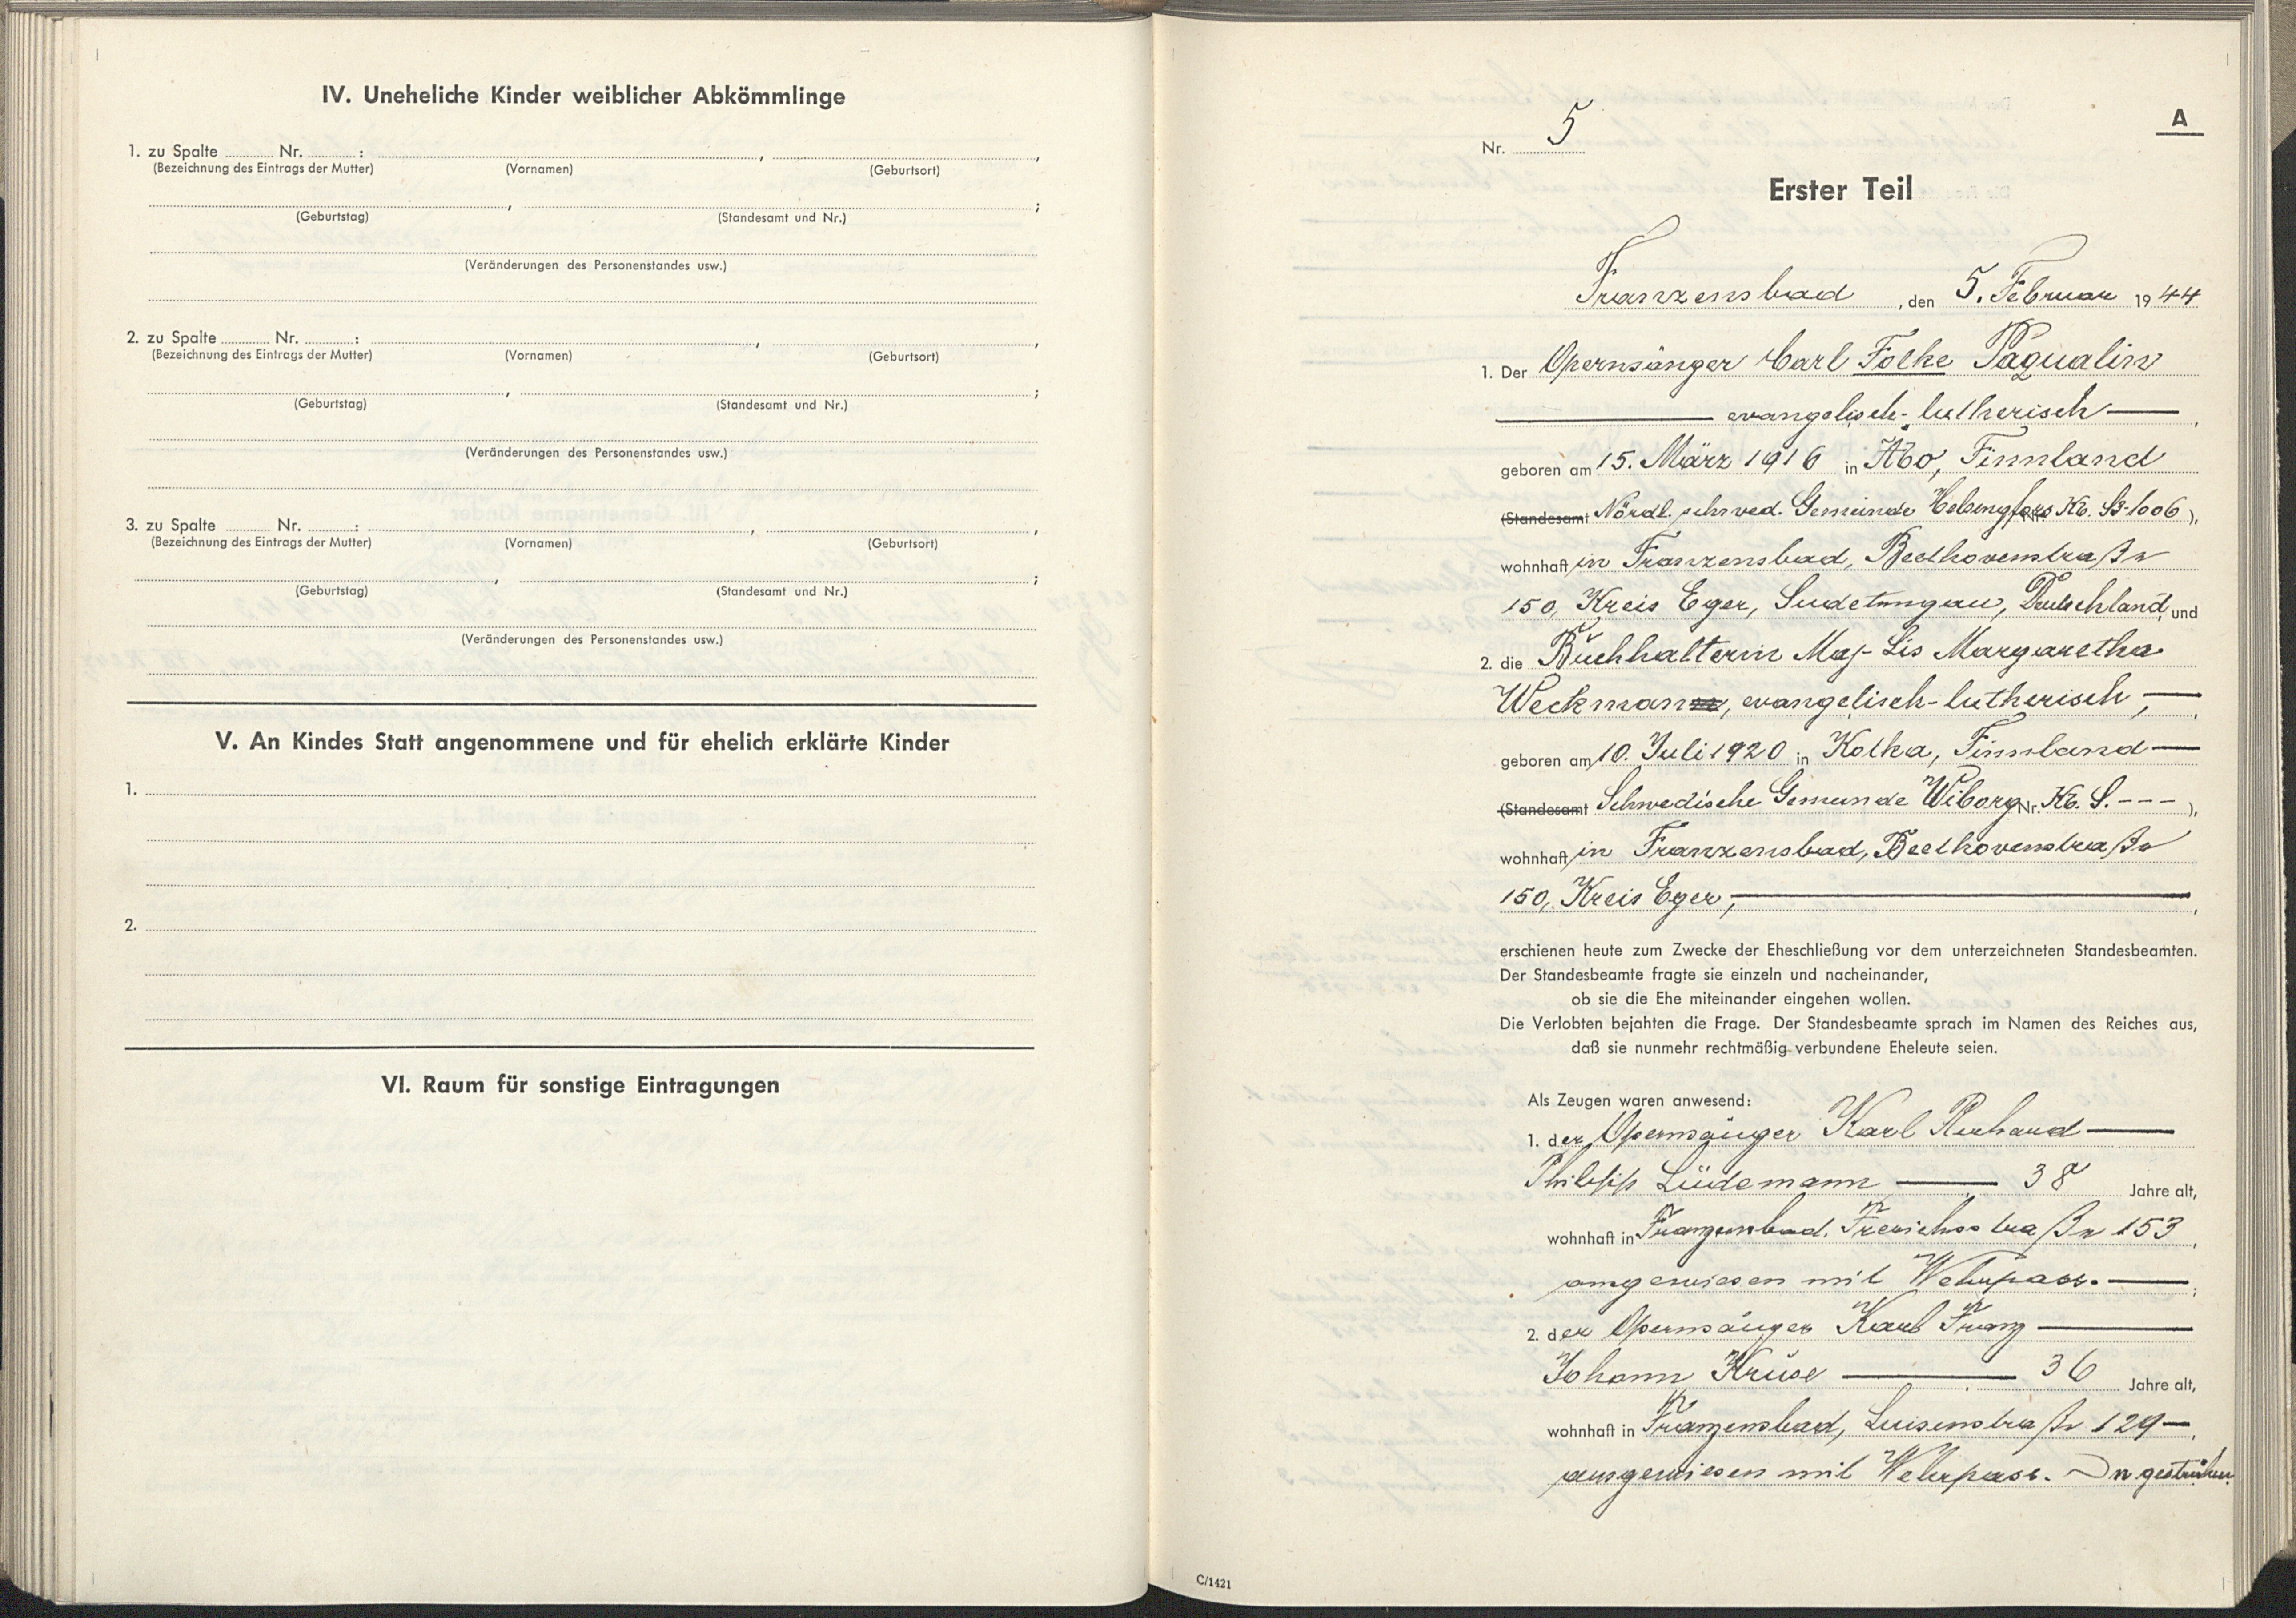 IV. Uneheliche Kinder weiblicher Abkömmlinge
1. zu Spalte Nr. : , ,
(Bezeichnung des Eintrags der Mutter) (Vornamen) (Geburtsort)
, ;
(Geburtstag) (Standesamt und Nr.)
(Veränderungen des Personenstandes usw.)
2. zu Spalte Nr. : , ,
(Bezeichnung des Eintrags der Mutter) (Vornamen) (Geburtsort)
, ;
(Geburtstag) (Standesamt und Nr.)
(Veränderungen des Personenstandes usw.)
3. zu Spalte Nr. : , ,
(Bezeichnung des Eintrags der Mutter) (Vornamen) (Geburtsort)
, ;
(Geburtstag) (Standesamt und Nr.)
(Veränderungen des Personenstandes usw.)
V. An Kindes Statt angenommene und für ehelich erklärte Kinder
1.
2.
VI. Raum für sonstige Eintragungen
A
Nr. 5
Erster Teil
Franzensbad, den 5. Februar 1944
1. Der Opernsänger Carl Folke Paqualin
evangelisch-lutherisch,
geboren am 15. März 1916 in Åbo, Finnland
(Standesamt Nördl. schwed. Gemeinde Helsingfors Nr. Kb. S3-1006),
wohnhaft in Franzensbad, Beethovenstraße
150, Kreis Eger, Sudetengau, Deutschland, und
2. die Buchhalterin Maj-Lis Margaretha
Weckmann, evangelisch-lutherisch,
geboren am 10. Juli 1920 in Kotka, Finnland
(Standesamt Schwedische Gemeinde Wiborg Nr. Kb. S. ---),
wohnhaft in Franzensbad, Beethovenstraße
150, Kreis Eger,
erschienen heute zum Zwecke der Eheschließung vor dem unterzeichneten Standesbeamten.
Der Standesbeamte fragte sie einzeln und nacheinander,
ob sie die Ehe miteinander eingehen wollen.
Die Verlobten bejahten die Frage. Der Standesbeamte sprach im Namen des Reiches aus,
daß sie nunmehr rechtmäßig verbundene Eheleute seien.
Als Zeugen waren anwesend:
1. der Opernsänger Karl
Philipp Lüdemann 38 Jahre alt,
wohnhaft in Franzensbad, Frerichsstraße 153,
ausgewiesen mit Wehrpass.;
2. der Opernsänger Karl Franz
Johann Kruse 36 Jahre alt,
wohnhaft in Franzensbad, Luisenstraße 129,
ausgewiesen mit Wehrpass. n gestrichen.
C/1421